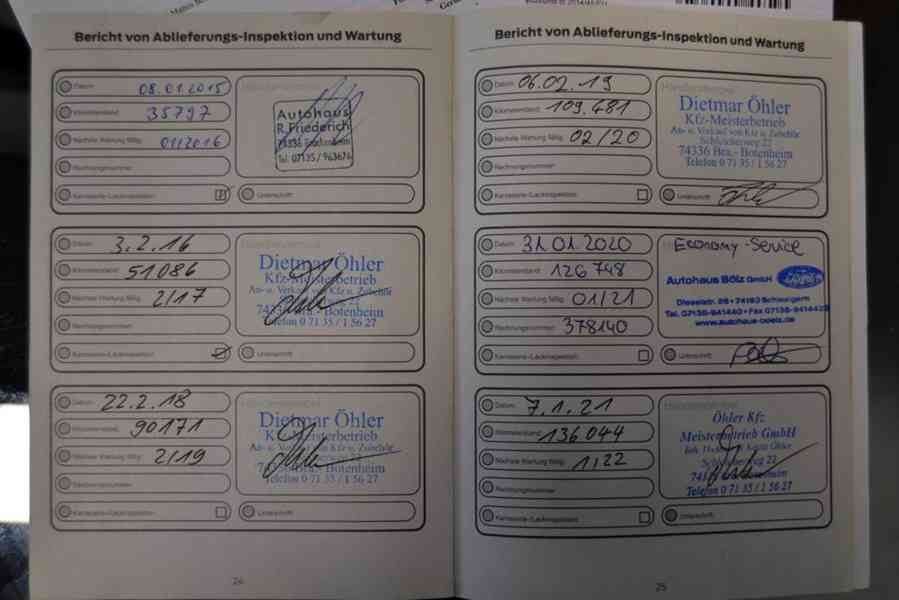 Bericht von Ablieferungs-Inspektion und Wartung
Datum: 08.01.2015
Kilometerstand: 35797
Nächste Wartung fällig: 01/2016
Rechnungsnummer:
Karosserie-Lackinspektion:
Autohaus
R. Friederich
Tel. 07135 / 963676
Unterschrift
Datum: 3.2.16
Kilometerstand: 51086
Nächste Wartung fällig: 2/17
Rechnungsnummer:
Karosserie-Lackinspektion:
Dietmar Öhler
Kfz-Meisterbetrieb
An- u. Verkauf von Kfz u. Zubehör
74336 Bra.- Botenheim
Telefon 0 71 35 / 1 56 27
Unterschrift
Datum: 22.2.18
Kilometerstand: 90171
Nächste Wartung fällig: 2/19
Rechnungsnummer:
Karosserie-Lackinspektion:
Dietmar Öhler
Kfz-Meisterbetrieb
An- u. Verkauf von Kfz u. Zubehör
74336 Bra.- Botenheim
Telefon 0 71 35 / 1 56 27
Unterschrift
24
Bericht von Ablieferungs-Inspektion und Wartung
Datum: 06.02.19
Kilometerstand: 109.481
Nächste Wartung fällig: 02/20
Rechnungsnummer:
Karosserie-Lackinspektion:
Händlerstempel
Dietmar Öhler
Kfz-Meisterbetrieb
An- u. Verkauf von Kfz u. Zubehör
Schleicherweg 22
74336 Bra.- Botenheim
Telefon 0 71 35 / 1 56 27
Unterschrift
Datum: 31.01.2020
Kilometerstand: 126 748
Nächste Wartung fällig: 01/21
Rechnungsnummer: 378140
Karosserie-Lackinspektion:
Economy-Service
Autohaus Bölz GmbH
Ford
Dieselstr. 26 • 74193 Schwaigern
Tel. 07138-941440 • Fax 07138-9414423
www.autohaus-boelz.de
Unterschrift
Datum: 7.1.21
Kilometerstand: 136 044
Nächste Wartung fällig: 1/22
Rechnungsnummer:
Karosserie-Lackinspektion:
Öhler Kfz
Meisterbetrieb GmbH
Schleicherweg 22
Telefon 0 71 35 / 1 56 27
Unterschrift
25